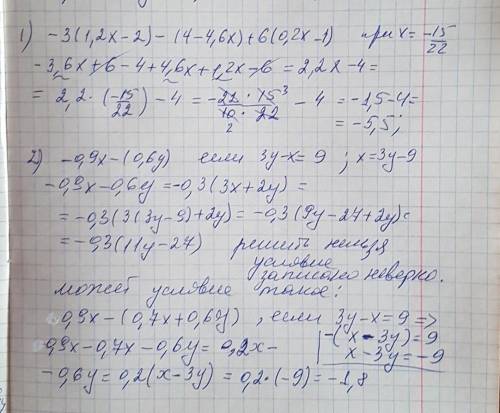 1) -3(1,2x-2)-(4-4,6x)+6(0,2x-1) при x=-15/22
-3,6x+6-4+4,6x+1,2x-6=2,2x-4=
=2,2·(-15/22)-4=-22·15³/10·22-4=-1,5-4=
2
=-5,5;
2) -0,9x-(0,6y) если 3y-x=9; x=3y-9
-0,9x-0,6y=-0,3(3x+2y)=
=-0,3(3(3y-9)+2y)=-0,3(9y-27+2y)=
=-0,3(11y-27) решить нельзя
условие
записано неверно.
может условие такое:
0,9x-(0,7x+0,6y), если 3y-x=9 =>
-(x-3y)=9
0,9x-0,7x-0,6y=0,2x-
x-3y=-9
-0,6y=0,2(x-3y)=0,2·(-9)=-1,8